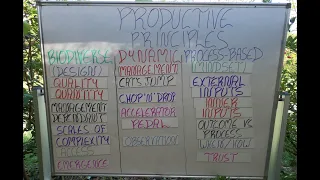 PRODUCTIVE
PRINCIPLES
BIODIVERSE
(DESIGN)
QUALITY
QUANTITY
MANAGEMENT
DEPENDENT
SCALES OF
COMPLEXITY
ACCESS
EMERGENCE
DYNAMIC
MANAGEMENT
CATS JUMP
CHOP'N'DROP
ACCELERATOR
PEDAL
OBSERVATION
PROCESS BASED
MINDSET
EXTERNAL
INPUTS
INNER
INPUTS
OUTCOME VS
PROCESS
WHEN/HOW
TRUST